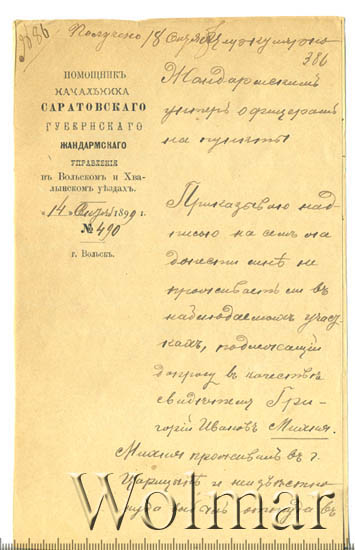 9886
Получено 18
386
ПОМОЩНИКЪ
НАЧАЛЬНИКА
САРАТОВСКАГО
ГУБЕРНСКАГО
ЖАНДАРМСКАГО
УПРАВЛЕНІЯ
въ Вольскомъ и Хва-
лынскомъ уѣздахъ.
14 1899 г.
№ 490
г. Вольскъ.
Жандармскимъ
унтеръ офицерамъ
на пунктѣ
Приказываю над-
писью на семъ
донести мнѣ не
проживаетъ ли въ
наблюдаемомъ участ
кахъ, подлежащій
допросу въ качествѣ
свидѣтеля Гри-
горій Ивановъ Михня.
Михня проживалъ въ г.
Царицынѣ и неизвѣстно
куда
Wolmar